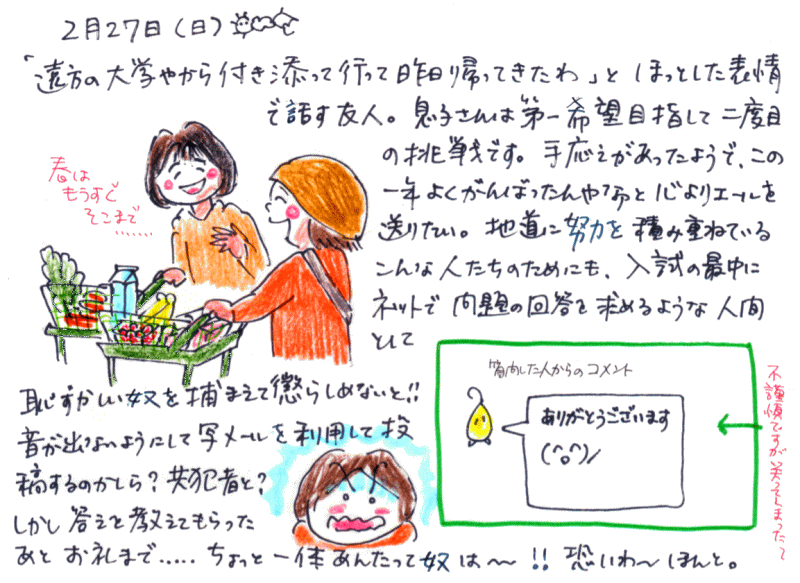 2月27日(日)
「遠方の大学やから付き添って行って昨日帰ってきたわ」と ほっとした表情
で話す友人。息子さんは第一希望目指して二度目
の挑戦です。手応えがあったようで、この
一年よくがんばったんやなあと心よりエールを
送りたい。地道に努力を積み重ねている
こんな人たちのためにも、入試の最中に
ネットで問題の回答を求めるような人間
として
恥ずかしい奴を捕まえて懲らしめないと!!
音が出ないようにして写メールを利用して投
稿するのかしら?共犯者と?
しかし答えを教えてもらった
あとお礼まで.....ちょっと一体あんたって奴は〜!!恐いわ〜ほんと。
春は
もうすぐ
そこまで......
質問した人からのコメント
ありがとうございます
(^o^)/
不謹慎ですが笑ってしまったて